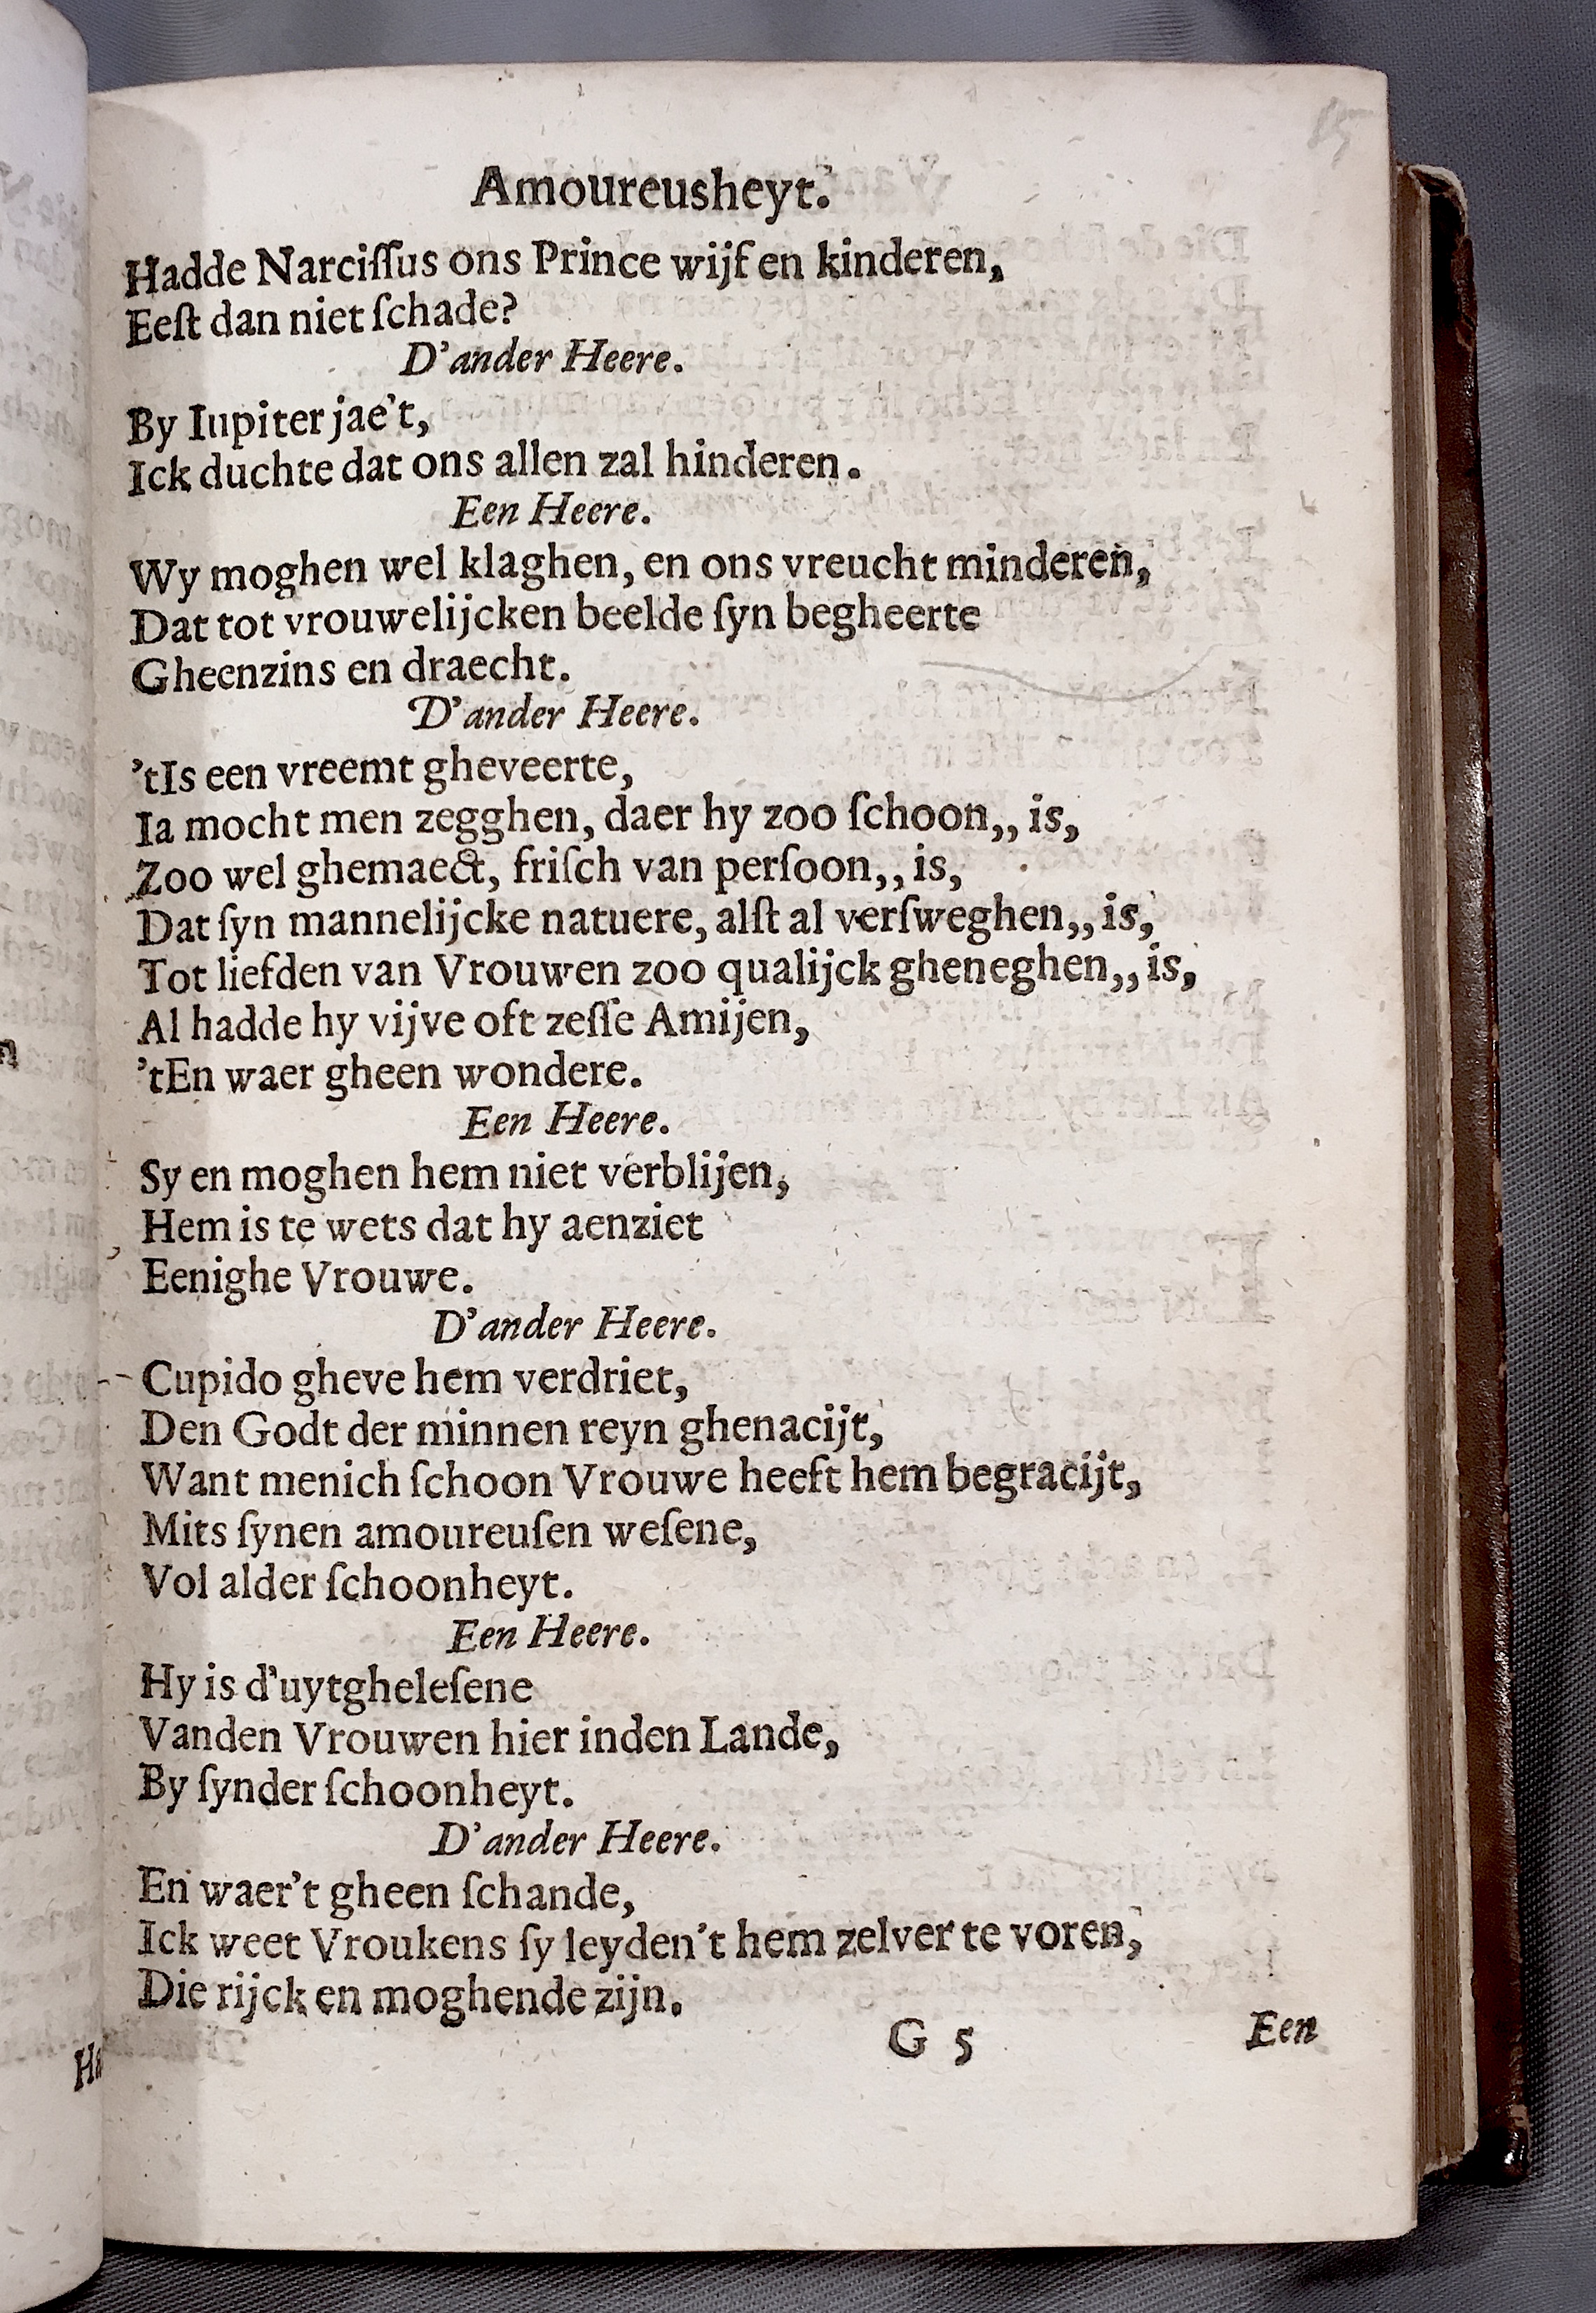 85
Amoureusheyt.
Hadde Narciſſus ons Prince wijf en kinderen,
Eeſt dan niet ſchade?
D'ander Heere.
By Iupiter jae't,
Ick duchte dat ons allen zal hinderen.
Een Heere.
Wy moghen wel klaghen, en ons vreucht minderen,
Dat tot vrouwelijcken beelde ſyn begheerte
Gheenzins en draecht.
D'ander Heere.
'tIs een vreemt gheveerte,
Ia mocht men zegghen, daer hy zoo ſchoon,, is,
Zoo wel ghemaect, friſch van perſoon,, is,
Dat ſyn mannelijcke natuere, alſt al verſweghen,, is,
Tot liefden van Vrouwen zoo qualijck gheneghen,, is,
Al hadde hy vijve oft zeſſe Amijen,
'tEn waer gheen wondere.
Een Heere.
Sy en moghen hem niet verblijen,
Hem is te wets dat hy aenziet
Eenighe Vrouwe.
D'ander Heere.
Cupido gheve hem verdriet,
Den Godt der minnen reyn ghenacijt,
Want menich ſchoon Vrouwe heeft hem begracijt,
Mits ſynen amoureuſen weſene,
Vol alder ſchoonheyt.
Een Heere.
Hy is d'uytgheleſene
Vanden Vrouwen hier inden Lande,
By ſynder ſchoonheyt.
D'ander Heere.
En waer't gheen ſchande,
Ick weet Vroukens ſy leyden't hem zelver te voren,
Die rijck en moghende zijn.
G 5 Een